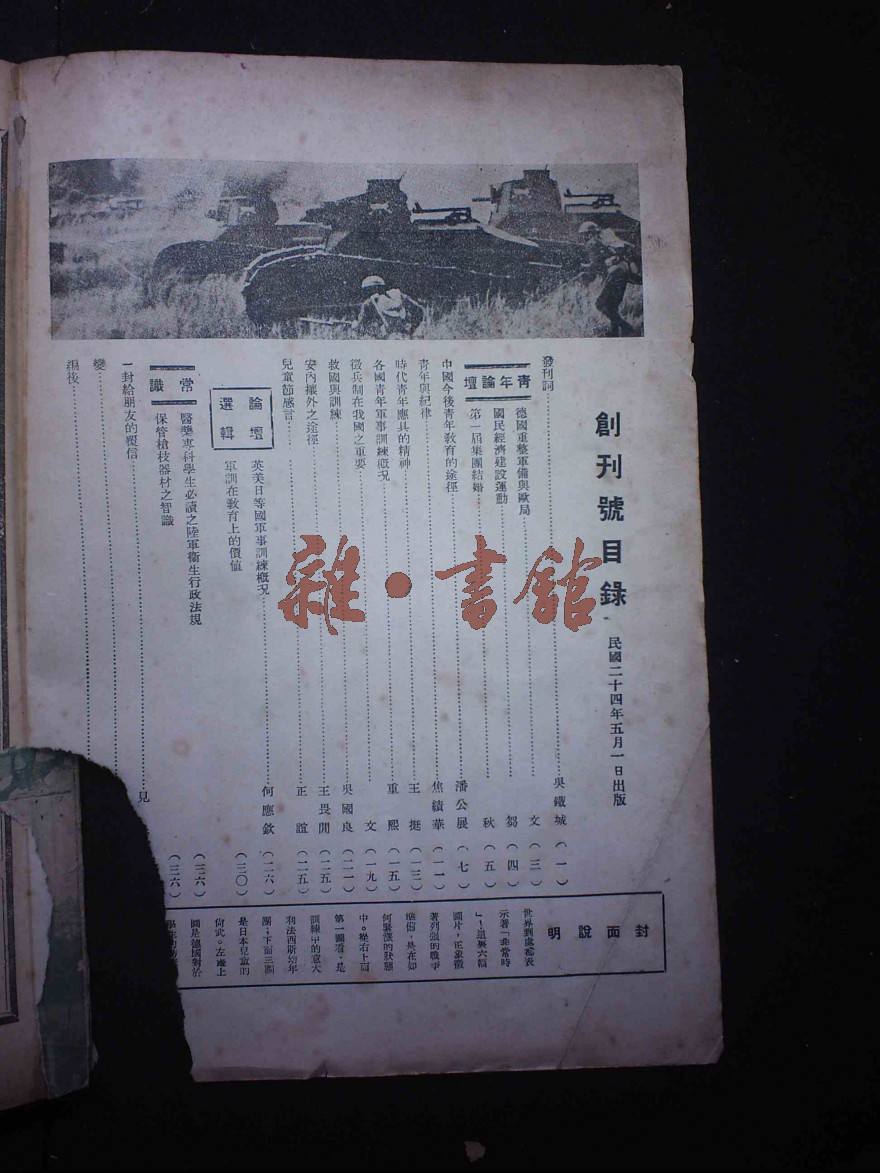 創刊號目錄
民國二十四年五月一日出版
發刊詞 吳鐵城 (一)
青年論壇
德國重整軍備與歐局 文 (三)
國民經濟建設運動 芻 (四)
第一屆集團結婚 秋 (五)
中國今後青年教育的途徑 潘公展 (七)
青年與紀律 焦績華 (一一)
時代青年應具的精神 王挺 (一三)
各國青年軍事訓練概況 重熙 (一五)
徵兵制在我國之重要 文 (一九)
救國與訓練 吳國良 (二一)
安內攘外之途徑 王長閒 (二五)
兒童節感言 正誼 (二五)
論壇選輯
英美日等國軍事訓練概況 何應欽 (二六)
軍訓在教育上的價值 (三〇)
常識
醫藥專科學生必讀之陸軍衛生行政法規 (三六)
保管槍枝器材之智識 (三六)
一封給朋友的覆信 見
變
編後
封面說明
世界到處都表
示著「非常時
」!這裏六幅
圖片,正象徵
著列強的戰爭
準備,是在如
何緊張的狀態
中。從右上面
第一圖看,是
訓練中的意大
利法西斯幼年
團;下面三圖
是日本兒童的
尚武。左邊上
圖是德國對於
雜·書館